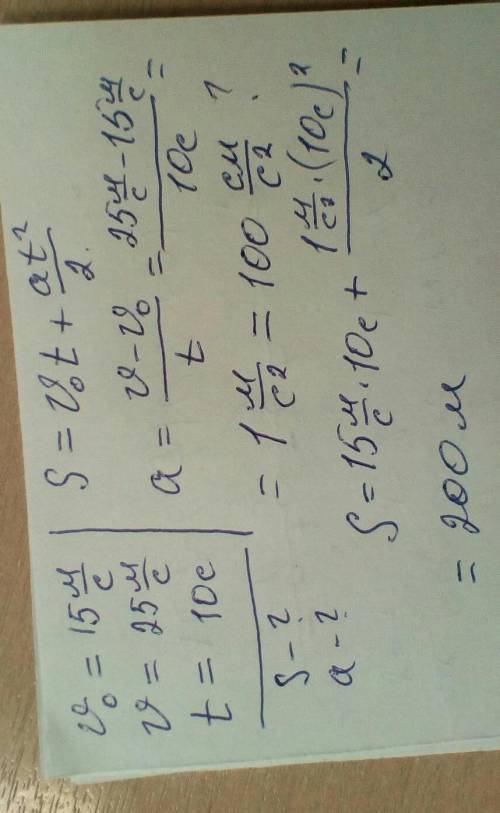 v₀ = 15 м/с
v = 25 м/с
t = 10с
S - ?
a - ?
S = v₀t + at²/2.
a = (v - v₀)/t = (25 м/с - 15 м/с)/10с =
= 1 м/с² = 100 см/с² ?
S = 15 м/с · 10с + (1 м/с² · (10с)²)/2 =
= 200 м